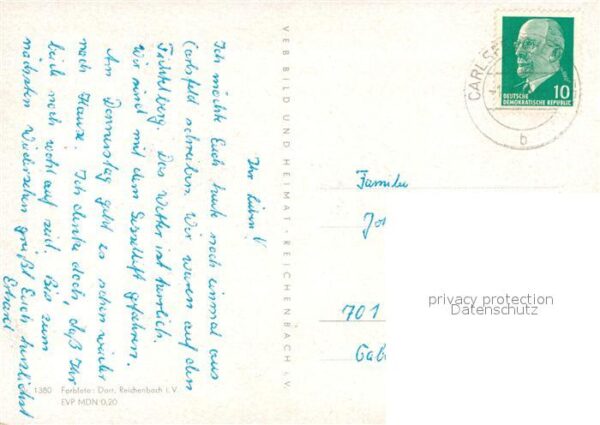 Ihr Lieben!
Ich möchte Euch heute noch einmal aus
Carlsfeld schreiben. Wir waren auf dem
Fichtelberg. Das Wetter ist herrlich.
Wir sind mit dem Sessellift gefahren.
Am Donnerstag geht es schon wieder
nach Hause. Ich denke doch, daß Ihr
beide noch wohl auf seid. Bis zum
nächsten Wiedersehen grüßt Euch herzlichst
Erhard
1380 Farbfoto: Darr, Reichenbach i. V.
EVP MDN 0,20
VEB BILD UND HEIMAT · REICHENBACH i. V.
CARLSF
b
10
DEUTSCHE
DEMOKRATISCHE REPUBLIK
Familie
701
privacy protection
Datenschutz